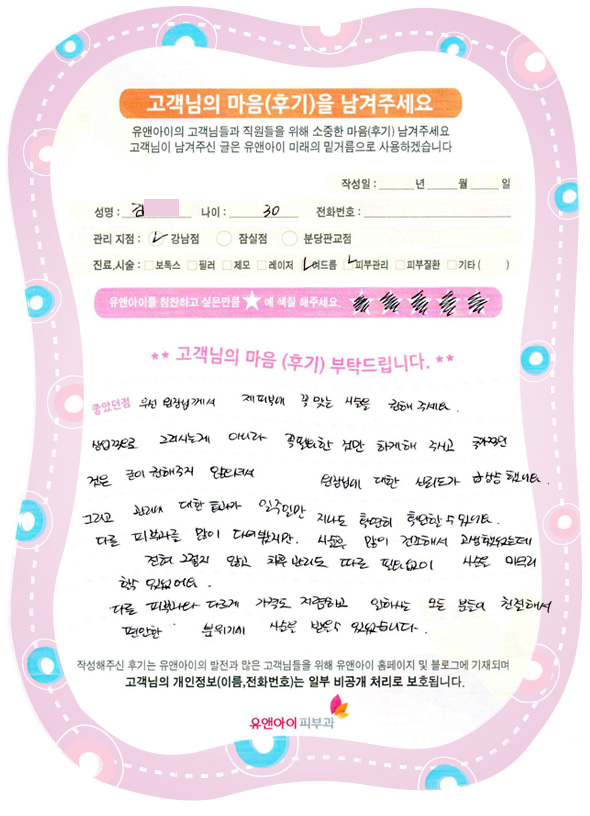 고객님의 마음(후기)을 남겨주세요
유앤아이의 고객님들과 직원들을 위해 소중한 마음(후기) 남겨주세요
고객님이 남겨주신 글은 유앤아이 미래의 밑거름으로 사용하겠습니다
작성일 : 년 월 일
성명 : 김 나이 : 30 전화번호 :
관리 지점 : 강남점 잠실점 분당판교점
진료,시술 : 보톡스 필러 제모 레이저 여드름 피부관리 피부질환 기타 ( )
유앤아이를 칭찬하고 싶은만큼 ★ 에 색칠 해주세요.
** 고객님의 마음 (후기) 부탁드립니다. **
좋았던점 우선 원장님께서 제피부에 꼭 맞는 시술을 권해 주세요.
상업적으로 그러시는게 아니라 꼭필요한 것만 하게해 주시고
것은 굳이 권해주지 않으셔서 원장님에 대한 신뢰도가 했어요.
그리고 관리에 대한 효과가 일주일만 지나도 확연히 확인할 수 있어요.
다른 피부과를 많이 다녀봤지만, 시술후 많이 건조해서 고생했었는데
전혀 그렇지 않고 따로 필요없이 시술은
할수 있었어요.
다른 피부과와 다르게 가격도 저렴하고 일하시는 모든 분들이 친절해서
편안한 분위기에 시술을 받을수 있었습니다.
작성해주신 후기는 유앤아이의 발전과 많은 고객님들을 위해 유앤아이 홈페이지 및 블로그에 기재되며
고객님의 개인정보(이름,전화번호)는 일부 비공개 처리로 보호됩니다.
유앤아이피부과